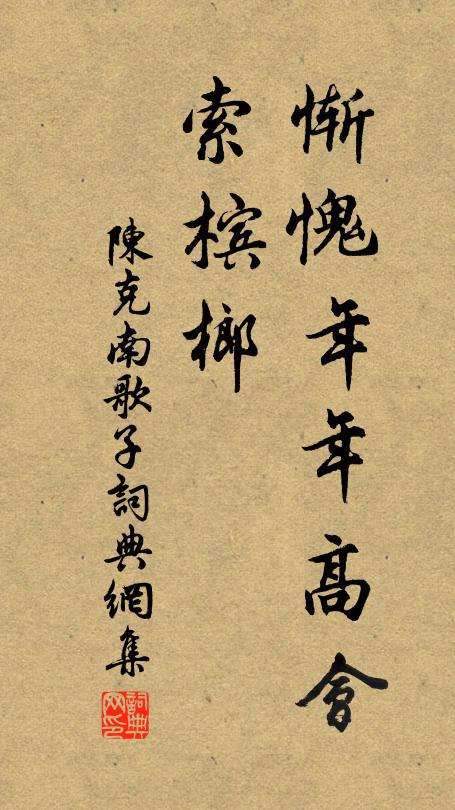 惭愧年年高會
索槟榔
陳克南歌子詞典網集
詞典网印